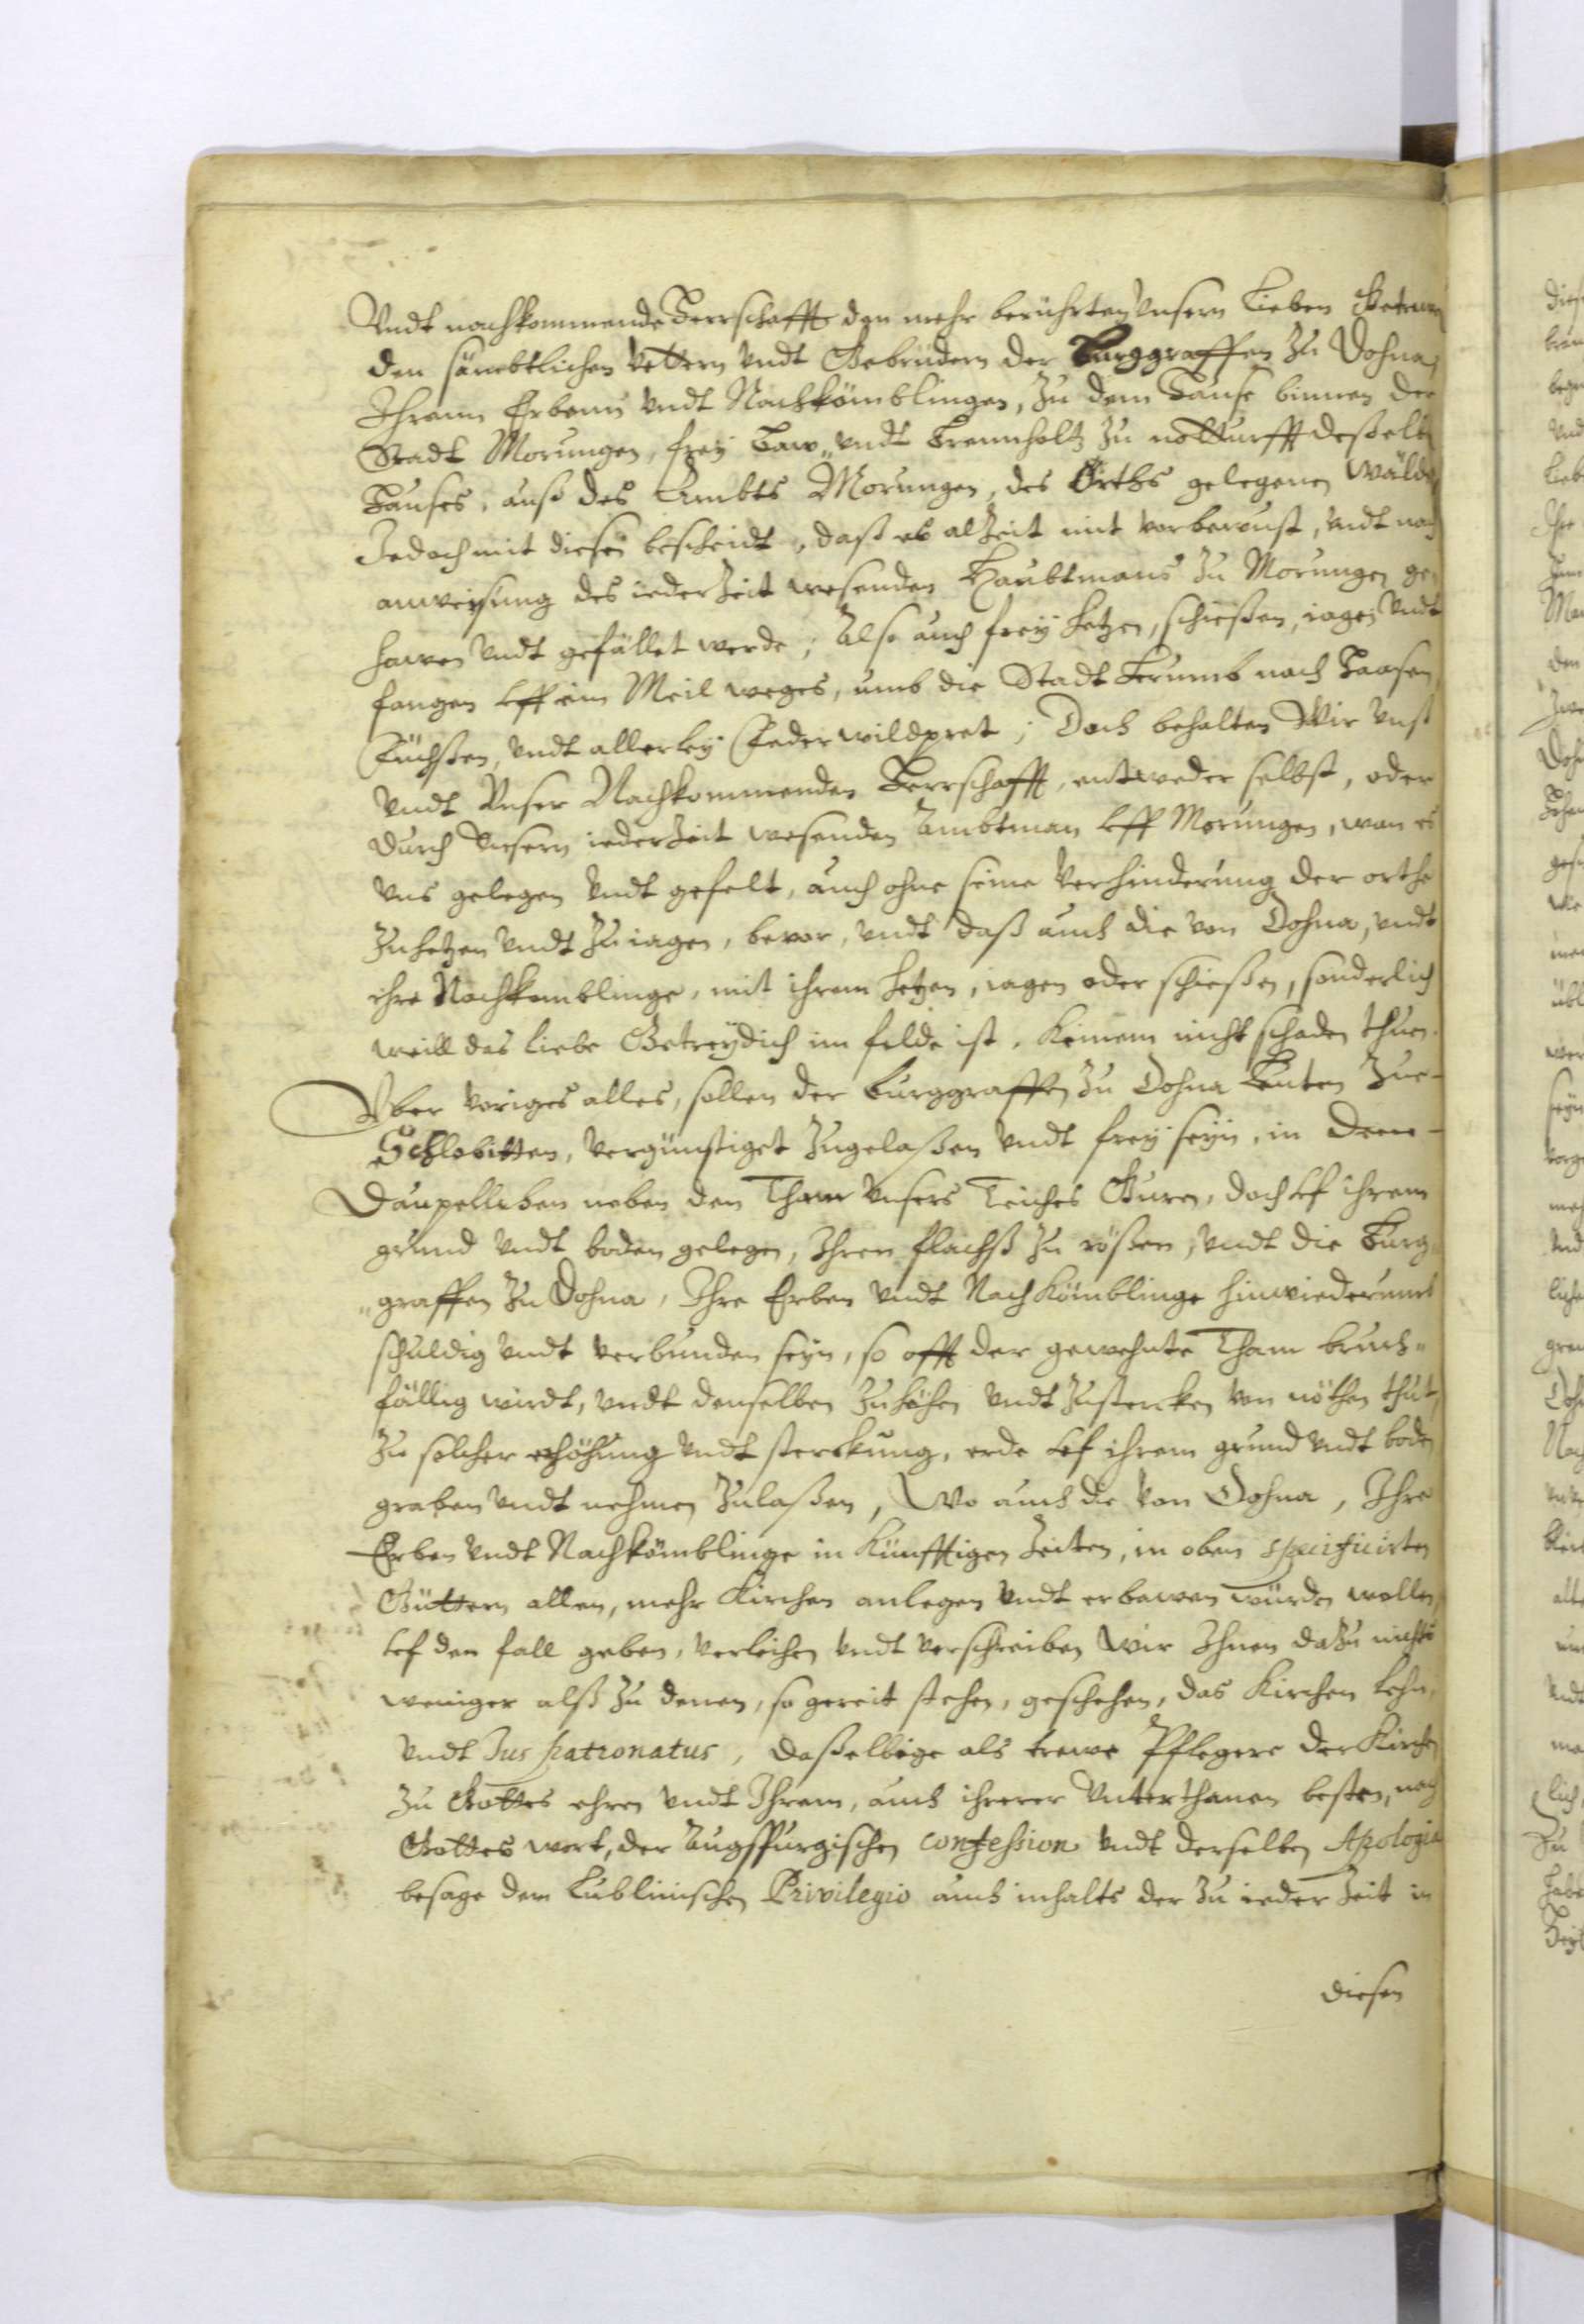 Vndt nachkommende Herrschafft den mehr berührten Vnsern Lieben Getrewen
den sämbtlichen Vettern Vndt Gebrüdern der Burggraffen zu Dohna,
Ihrenn Erbenn Vndt Nachkömblingen, zu dem Hause binnen der
Stadt Morungen, frey Baw- vndt Brennholtz zu notturfft desselben
Hauses, auß des Ambts Morungen, des Orths gelegenen Wälde
Jedoch mit diesen bescheidt, daß es alzeit mit vorbewust, Vndt nach
anweysung des iederzeit wesenden Haubtmans zu Morungen ge-
hawen Vndt gefället werde; Also auch frey hetzen, schießen, iagen Vndt
fangen Vff ein Meil weges, umb die Stadt herumb nach Haasen
Füchßen, Vndt allerley Federwildpret; Doch behalten Wir Vnß
Vndt Vnser Nachkommenden Herrschafft, entweder selbst, oder
durch Vnsern iederzeit wesenden Ambtman Vff Morungen, wan es
Vns gelegen Vndt gefelt, auch ohne seine Verhinderung der orthe
zuhetzen Vndt zu iagen, bevor, Vndt daß auch die Von Dohna, Vndt
ihre Nachkomblinge, mit ihrem hetzen, iagen oder schießen, sonderlich
weill das liebe Getreydich im felde ist, Keinem nicht schaden thuen.
Vber Voriges alles, sollen der Burggraffen zu Dohna Leuten zue-
Schlobitten, Vergünstiget zugelaßen Vndt frey seyn, in dem-
neben den Tham Vnsers Teiches Guren, doch Vf ihrem
grund Vndt boden gelegen, Ihren flachß zu rößen, Vndt die Burg-
graffen zu Dohna, Ihre Erben Vndt Nachkömblinge hinwiederumb
schuldig Vndt Verbunden seyn, so offt der gewehnte Tham bruch-
fällig wirdt, Vndt denselben zuhöhen Vndt zustercken Von nöthen thut,
zu solcher erhöhung Vndt sterckung, erde Vf ihrem grund Vndt boden
graben Vndt nehmen zulaßen, Wo auch die Von Dohna, Ihre
Erben Vndt Nachkömblinge in Künfftigen Zeiten, in oben specificirten
Güttern allen, mehr Kirchen anlegen Vndt erbawen würden wollen,
Vf den fall geben, Verleihen Vndt Verschreiben Wir Ihnen dazu nichts
weniger alß zu denen, so gereit stehen, geschehen, das Kirchen Lehn,
Vndt Jus patronatus, daßelbige als trewe Pflegere der Kirchen
zu Gottes ehren Vndt Ihrem, auch ihrerer Vnterthanen besten, nach
Gottes wort, der Augspurgischen confession Vndt derselben Apologia
besage dem Lublinischen Privilegio auch inhalts der zu ieder Zeit in
diesen